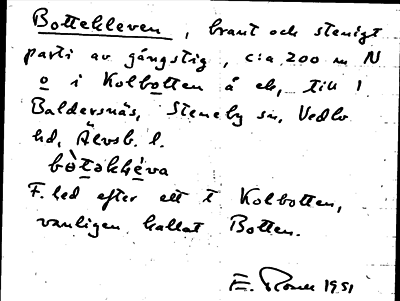 Bottekleven, brant och stenigt
parti av gångstig, c:a 200 m N
o i Kolbotten å ek, till 1
Baldersnäs, Steneby sn, Vedbo
hd, Älvsb. l.
F. led efter ett t Kolbotten,
vanligen kallat Botten.
E. 1951